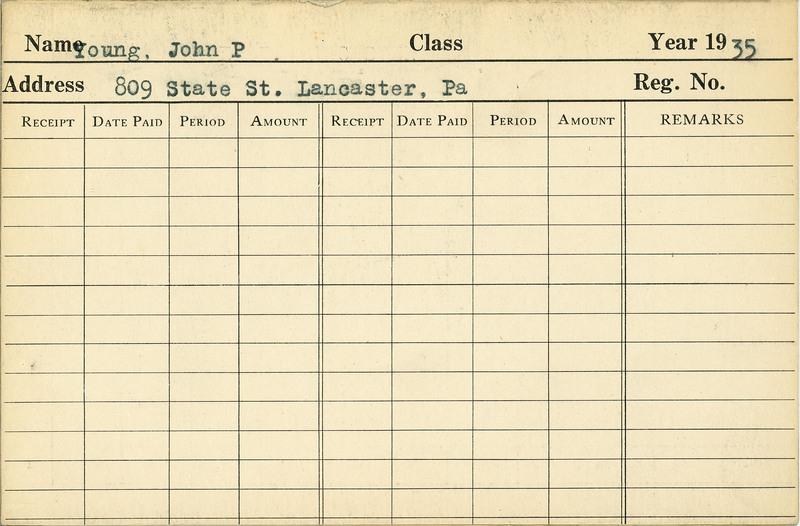 Name Young, John P. Class Year 1935
Address 809 State St. Lancaster, Pa Reg. No.
RECEIPT DATE PAID PERIOD AMOUNT RECEIPT DATE PAID PERIOD AMOUNT REMARKS